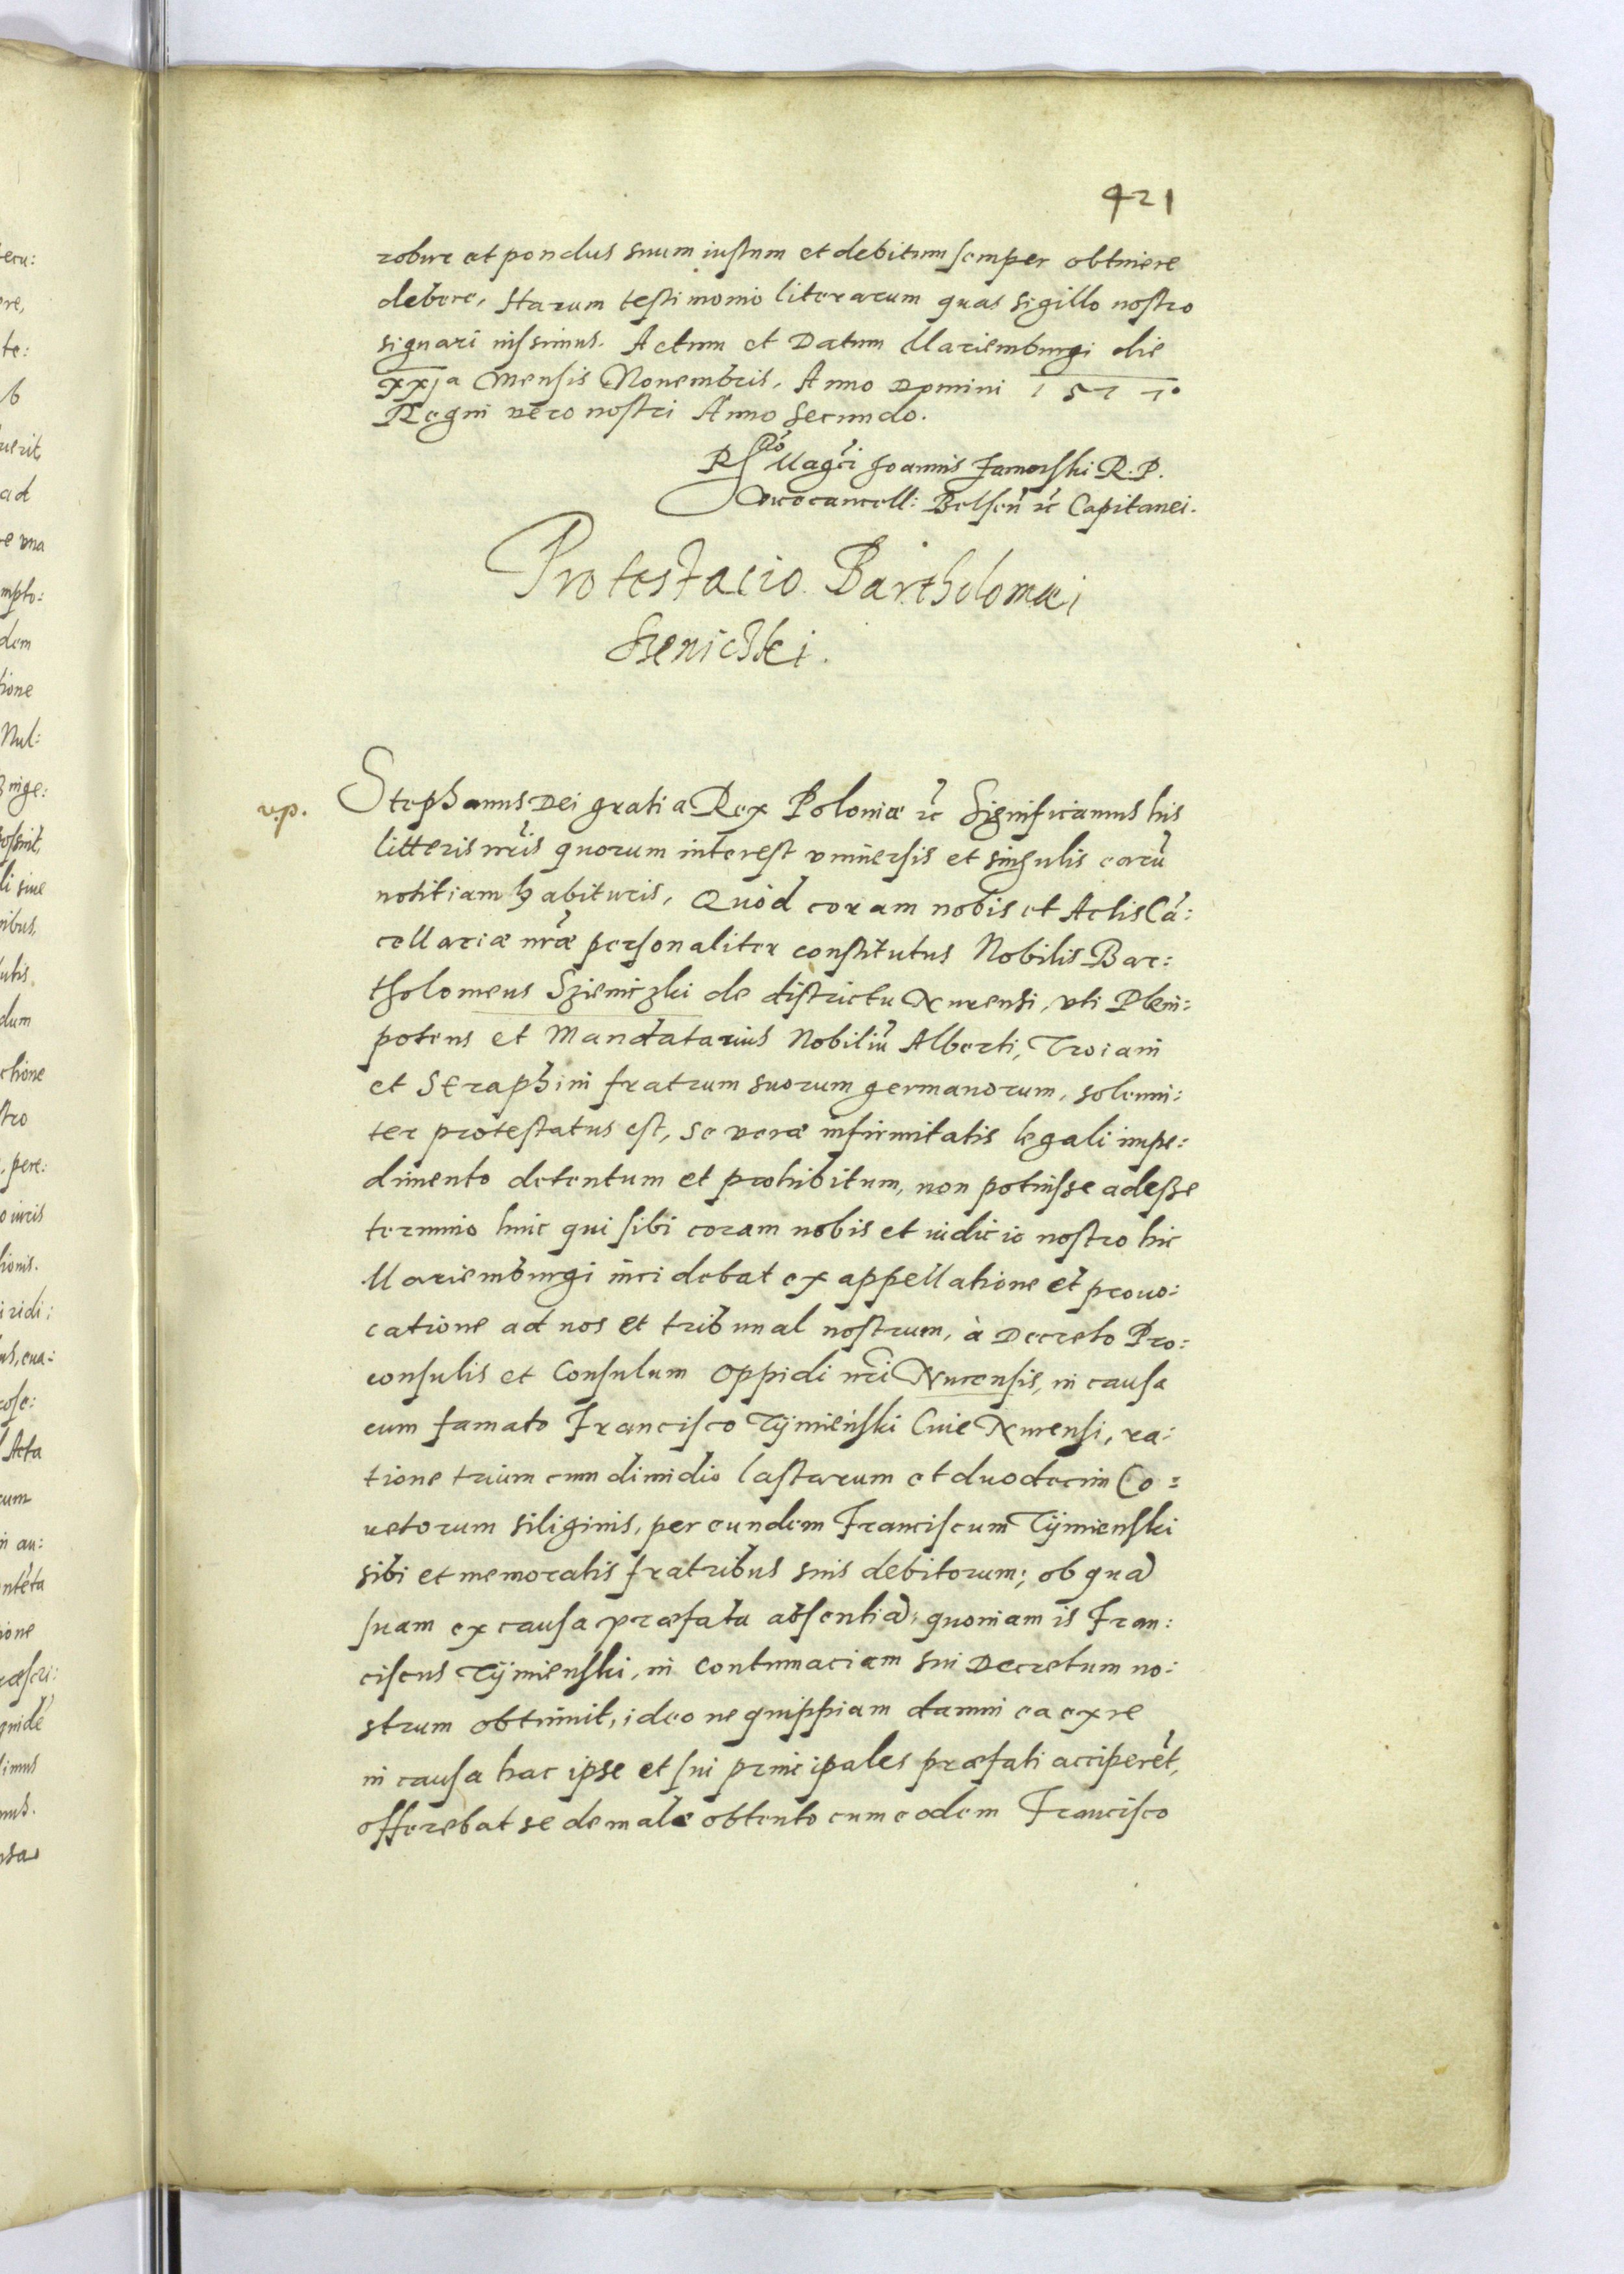 421
robur et pondus suum iustum et debitum semper obtinere
debere, Harum testimonio literarum quas sigillo nostro
signari iussimus. Actum et Datum Mariemburgi die
xxja Mensis Nouembris, Anno Domini 1577°
Regni vero nostri Anno Secundo.
Rlãо Magci Joannis Zamoyski R. P.
Vicecancell: Belsen ꝛc Capitanei.
Protestacio Bartholomæi
Szeniczki.
v.p.
Stephanus Dei gratia Rex Poloniæ ꝛc Significamus his
litteris nris quorum interest vniuersis et singulis earũ
notitiam habituris, Quòd coram nobis et Actis Cã:
cellariæ nræ personaliter constitutus Nobilis Bar:
tholomeus Szieniczki de districtu Nurensi, vti Pleni:
potens et Mandatarius Nobiliũ Alberti, Troiani
et Seraphini fratrum suorum germanorum, solenni:
ter protestatus est, se veræ infirmitatis legali impe:
dimento detentum et prohibitum, non potuisse adesse
termino huic qui sibi coram nobis et iudicio nostro hic
Mariemburgi incidebat ex appellatione et prouo:
catione ad nos et tribunal nostrum, à Decreto Pro:
consulis et Consulum oppidi nri Nurensis, in causa
cum famato Francisco Tÿmieński Ciue Nurensi, ra:
tione trium cum dimidio lastarum et duodecim Co:
retorum siliginis, per eundem Franciscum Tÿmienski
sibi et memoratis fratribus suis debitorum; ob quã
suam ex causa præfata absentiã, quoniam is Fran:
ciscus Tÿmienski, in contumaciam sui Decretum no:
strum obtinuit, ideo ne quippiam damni ea ex re
in causa hac ipse et sui principales præfati acciperẽt,
offerebat se de male obtento cum eodem Francisco